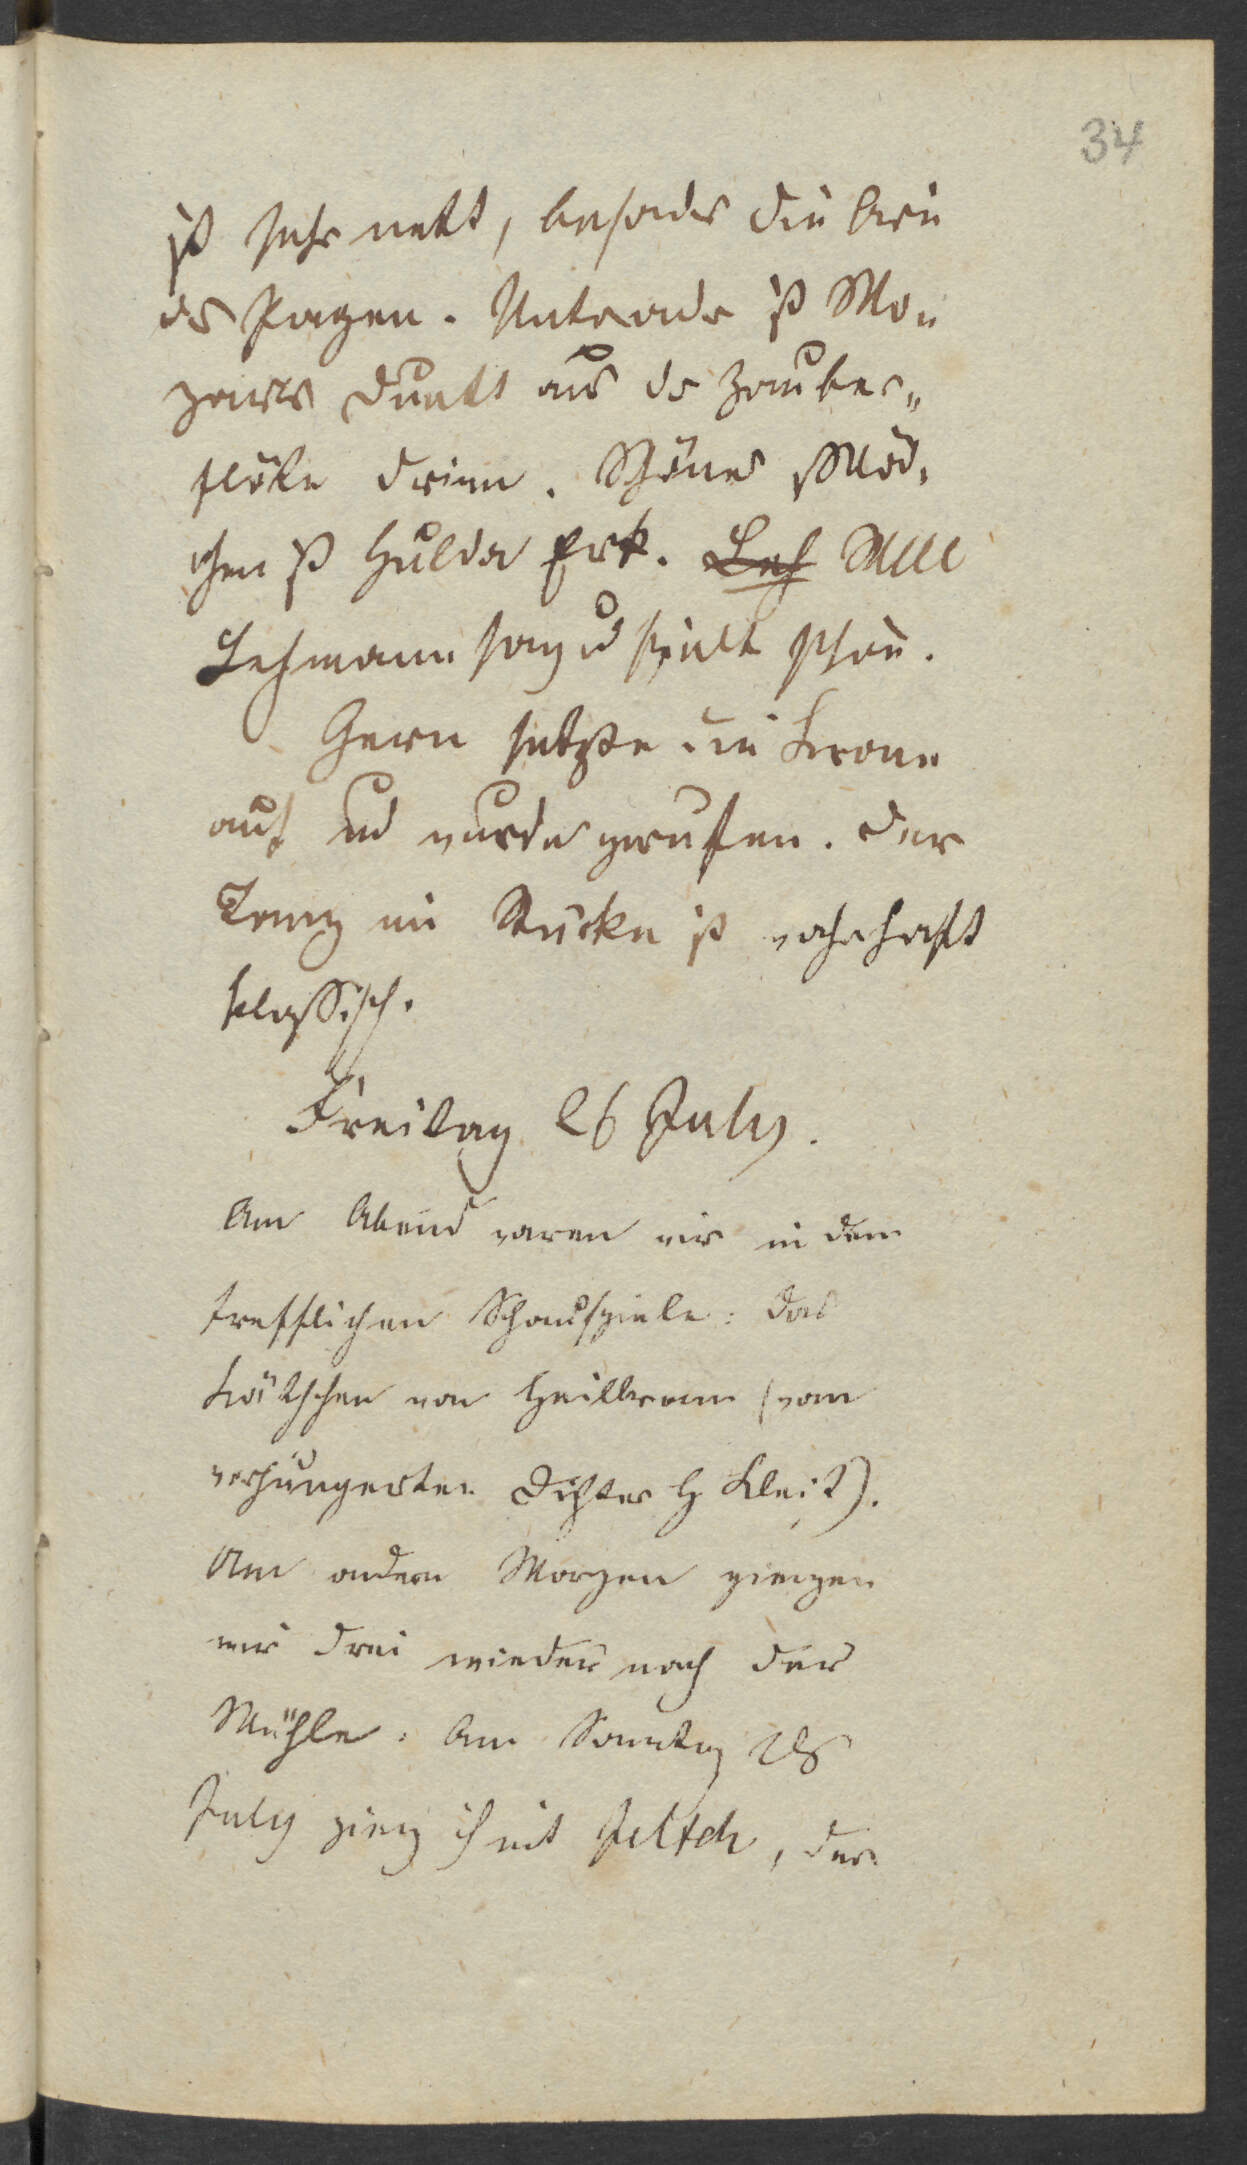 34
ist sehr nett, besonders die Arie
des Pagen. Unteranders ist Mo=
zarts Duett aus der Zauber=
flöte drinn. Schönes Mäd=
chen ist Hulda Erk. Leh Mlle
Lehmann sang u spielt schön.
Gern setzte die Krone
auf und wurde gerufen. Der
Tanz im Stücke ist wahrhaft
klassisch.
Freitag 26 July.
Am Abend waren wir in dem
trefflichen Schauspiele: Das
Kätchen von Heilbronn (vom
verhungerten Dichter H Kleist).
Am andern Morgen giengen
wir drei wieder nach der
Mühle. Am Sonntag 28
July gieng ich mit Jeltch, der